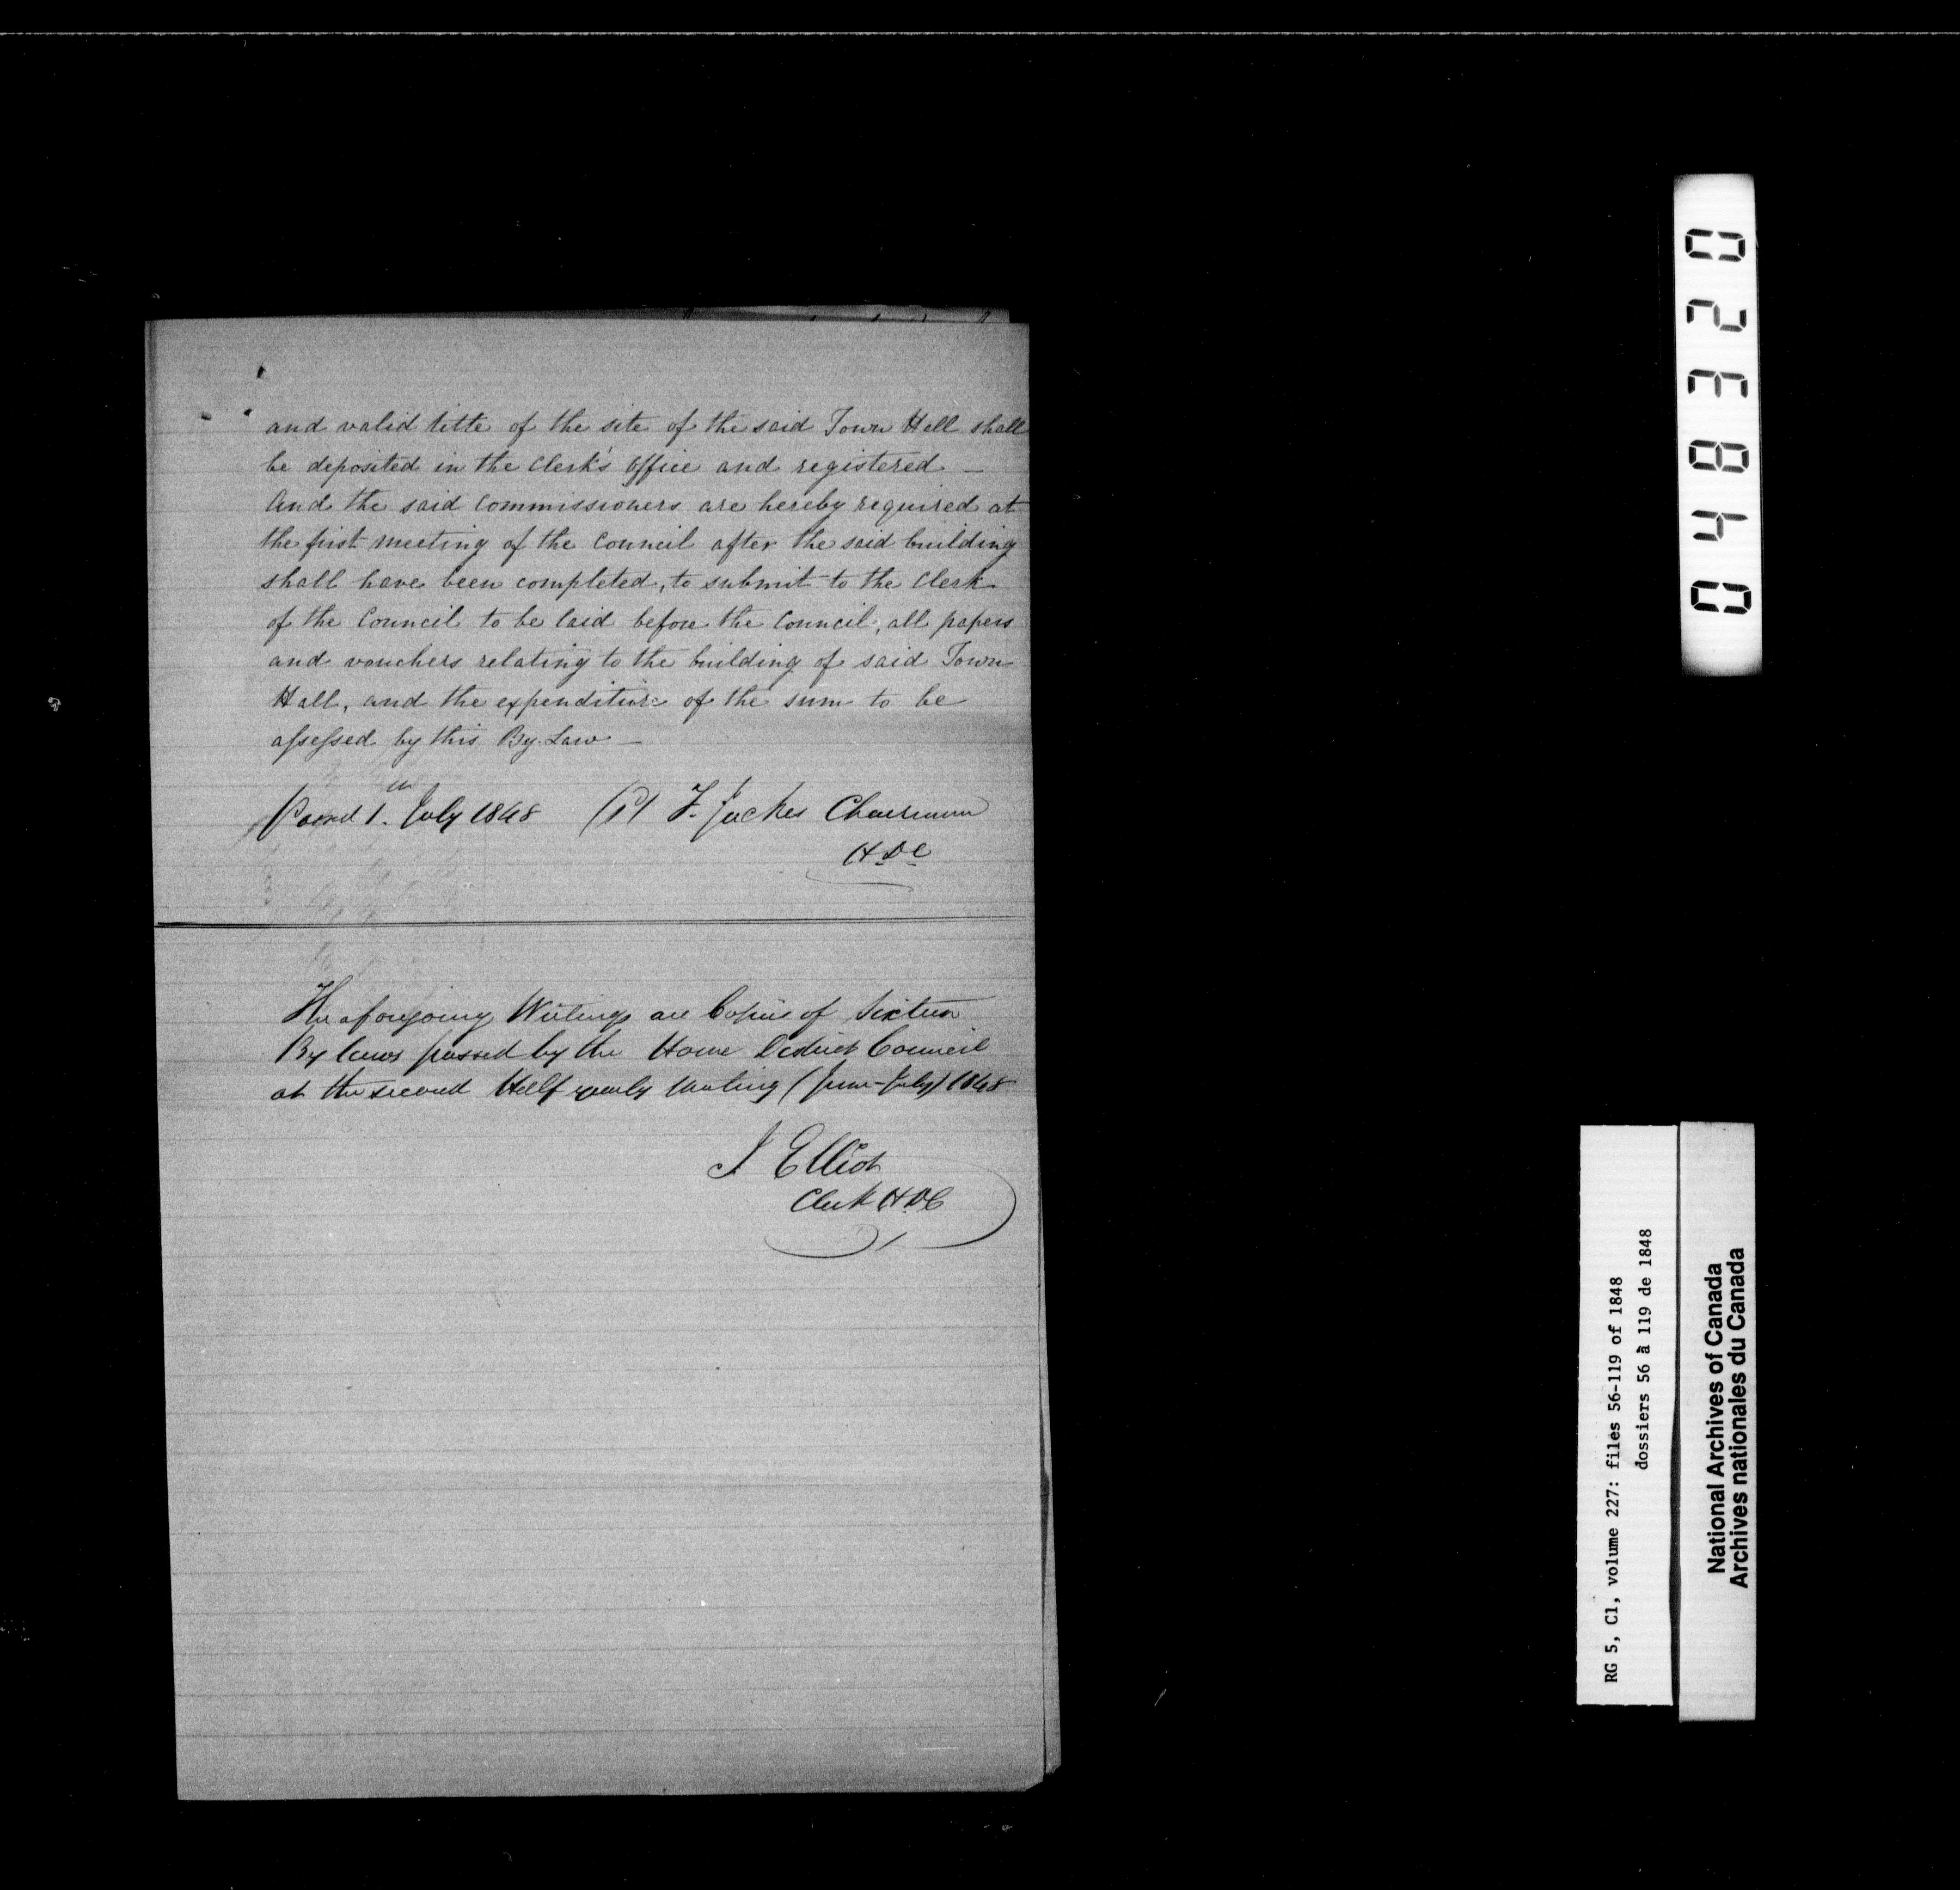 and valid title of the site of the said Town Hall shall
be deposited in the Clerk's Office and registered —
And the said Commissioners are hereby required at
the first meeting of the Council after the said building
shall have been completed, to submit to the Clerk
of the Council to be laid before the Council, all papers
and vouchers relating to the building of said Town
Hall, and the expenditure of the sum to be
assessed by this By-Law —
Passed 1st July 1848 F. Jackes Chairman
H.D.C
The aforegoing Writings are Copies of Sixteen
By laws passed by the Home District Council
at the second Half yearly Meeting (June-July) 1848
J Elliot
Clerk H.D.C
048320
RG 5, C1, volume 227: files 56-119 of 1848
dossiers 56 à 119 de 1848
National Archives of Canada
Archives nationales du Canada